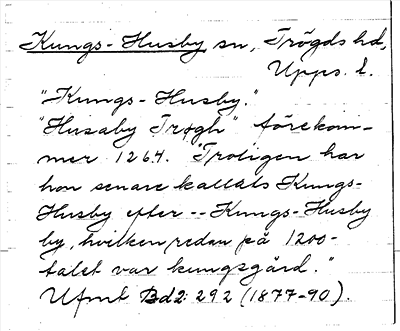 Kungs-Husby sn, Trögds hd,
Upps. l.
"Kungs-Husby."
"Husaby Trøgh" förekom-
mer 1264. "Troligen har
hon senare kallats Kungs-
Husby efter -- Kungs-Husby
by, hvilken redan på 1200-
talet var kungsgård."
Ufmt Bd 2: 292 (1877-90).